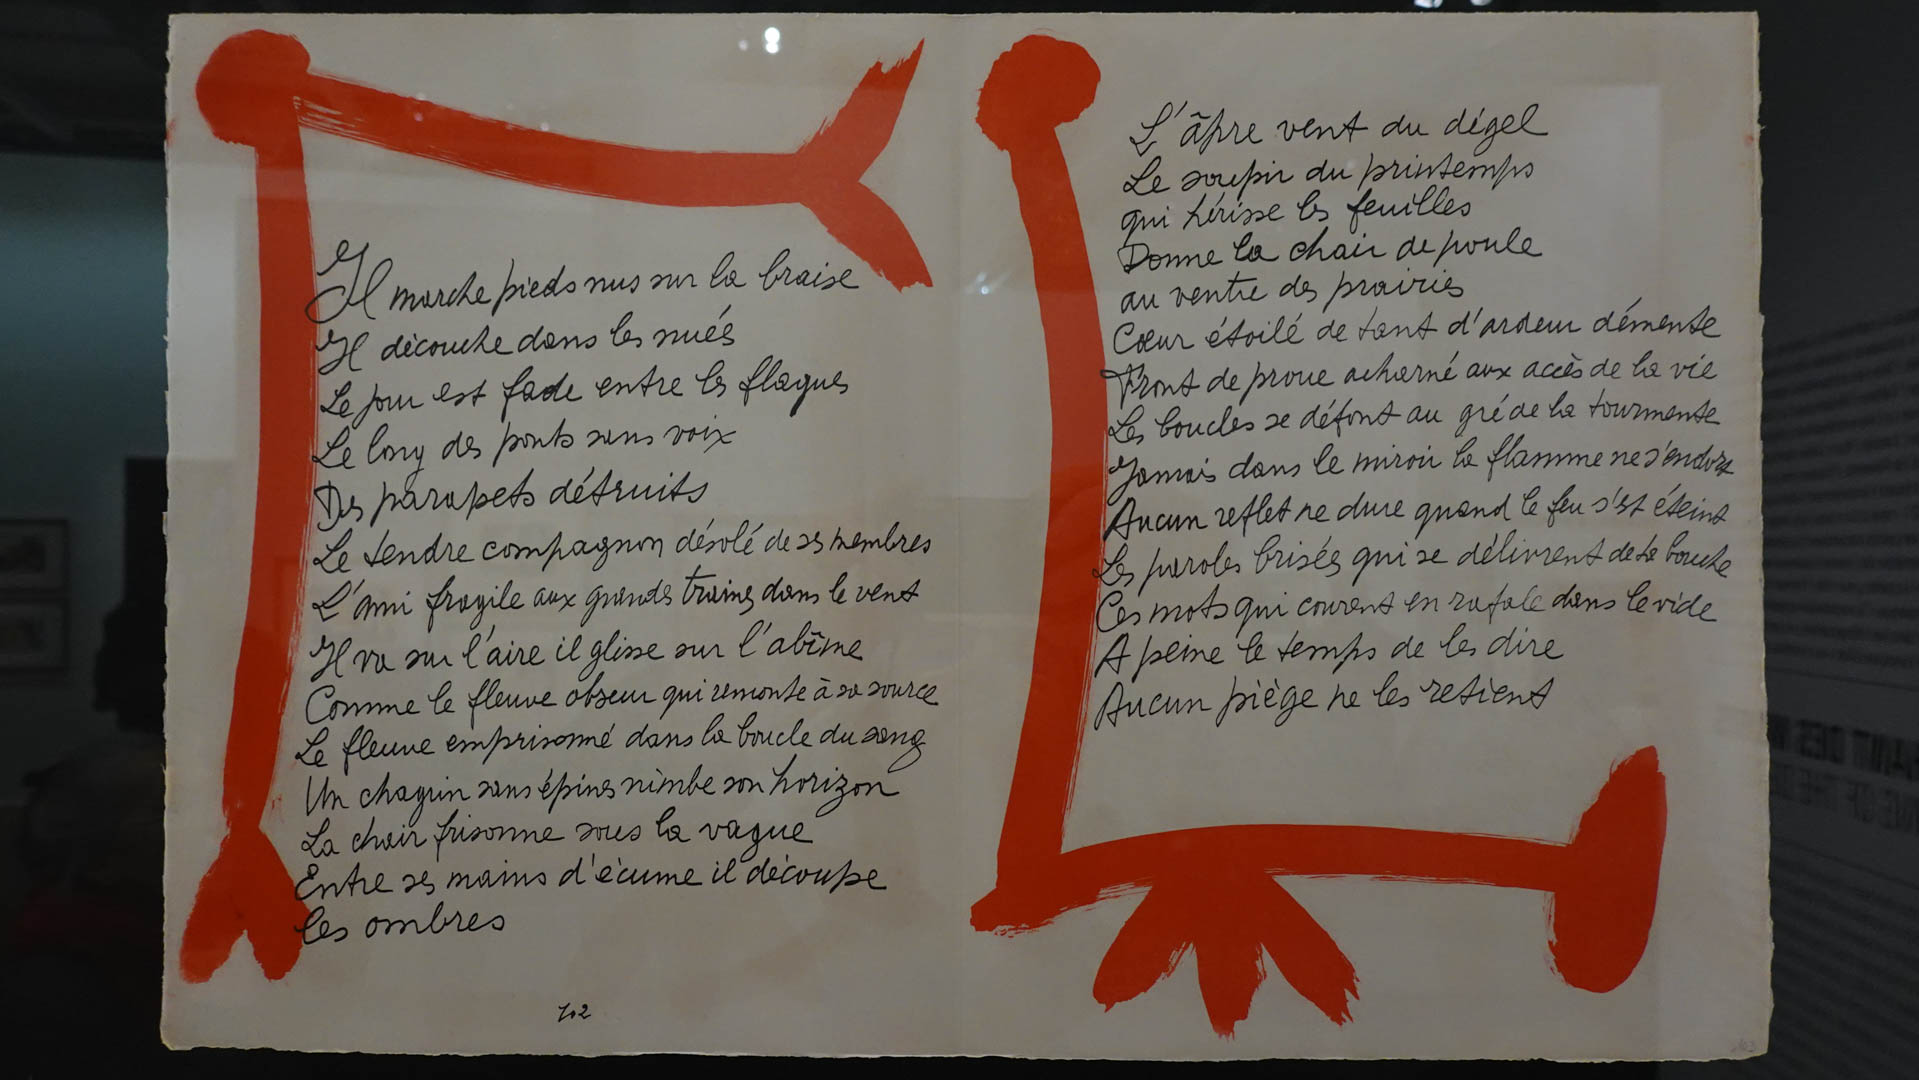 Il marche pieds nus sur la braise
Il découche dans les nués
Le jour est fade entre les flaques
Le long des ponts sans voix
Des parapets détruits
Le tendre compagnon désolé de ses membres
L'ami fragile aux grands trains dans le vent
Il va sur l'aire il glisse sur l'abîme
Comme le fleuve obscur qui remonte à sa source
Le fleuve emprisonné dans la boucle du sang
Un chagrin sans épines nimbe son horizon
La chair frisonne sous la vague
Entre ses mains d'écume il découpe
les ombres
102
L'âpre vent du dégel
Le soupir du printemps
qui hérisse les feuilles
Donne la chair de poule
au ventre des prairies
Cœur étoilé de tant d'ardeur démente
Front de proue acharné aux accès de la vie
Les boucles se défont au gré de la tourmente
Jamais dans le miroir la flamme ne s'endort
Aucun reflet ne dure quand le feu s'est éteint
Les paroles brisées qui se délivrent de ta bouche
Ces mots qui courent en rafale dans le vide
A peine le temps de les dire
Aucun piège ne les retient